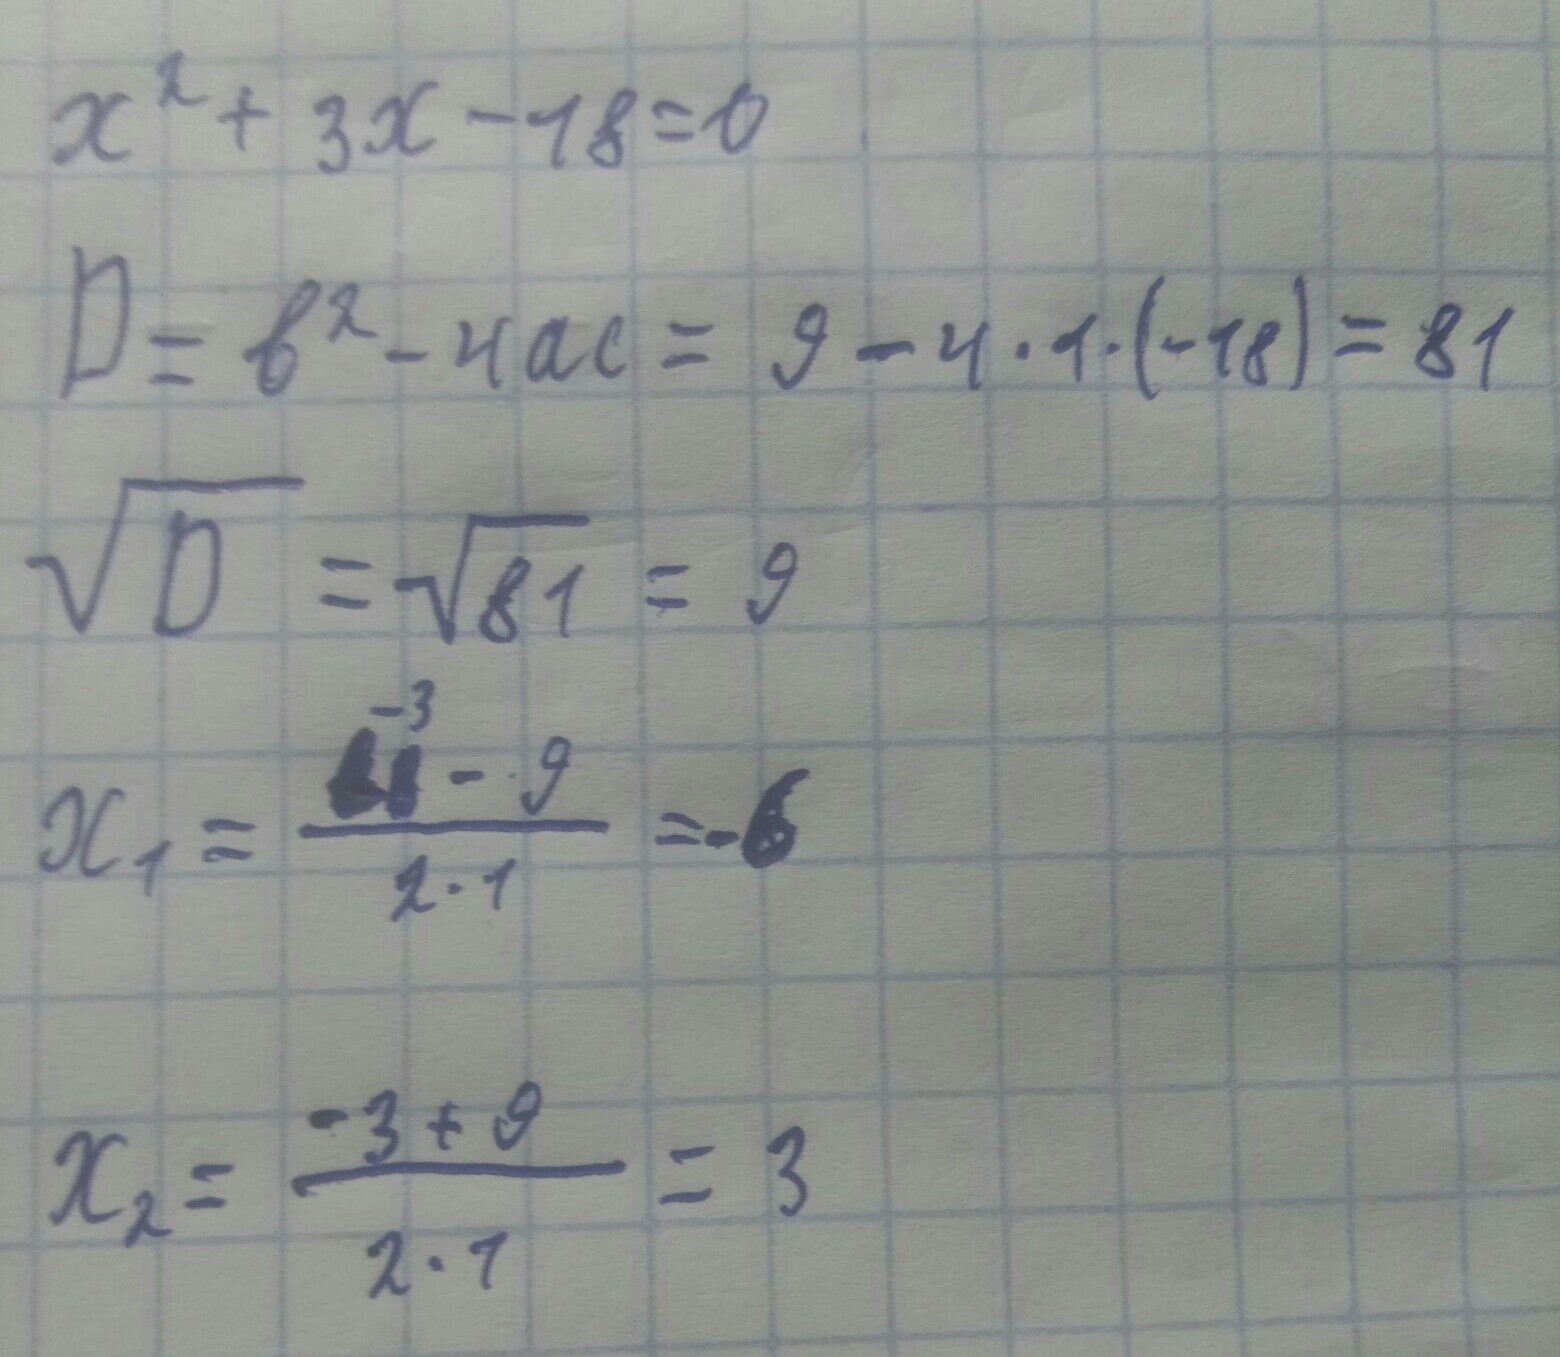 x² + 3x - 18 = 0
D = b² - 4ac = 9 - 4 · 1 · (-18) = 81
√D = √81 = 9
x₁ = (-3 - 9) / (2 · 1) = -6
x₂ = (-3 + 9) / (2 · 1) = 3